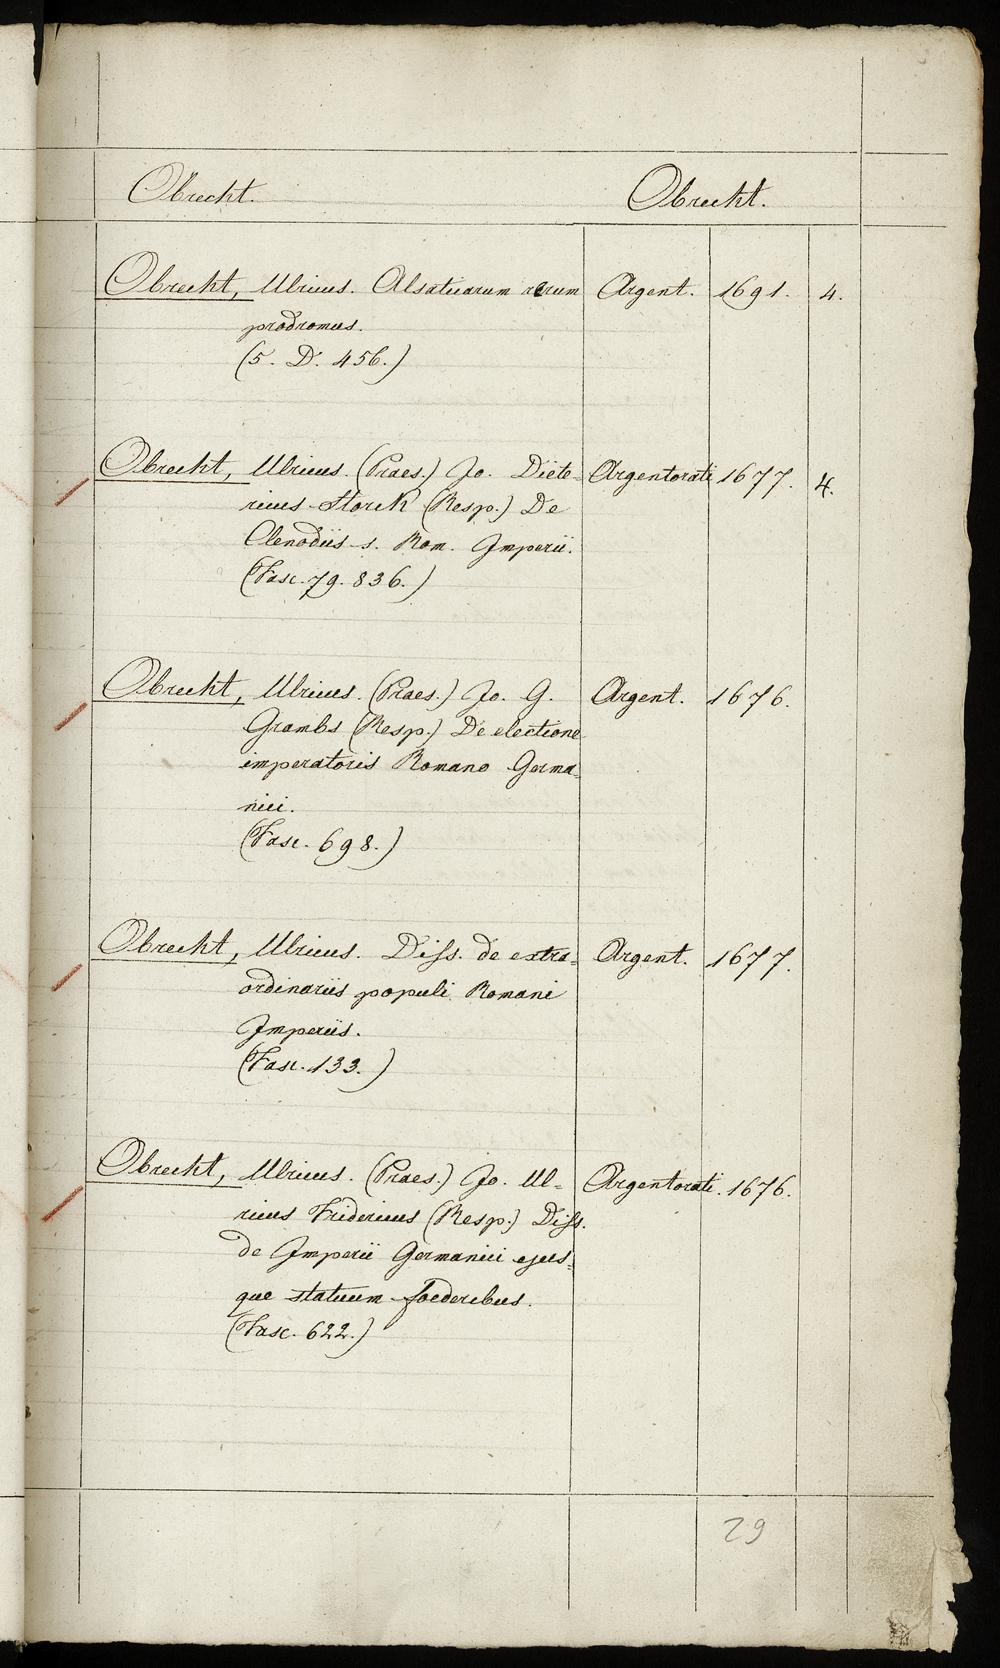 Obrecht. Obrecht.
Obrecht, Ulricus. Alsaticarum rerum Argent. 1691. 4.
prodromus.
(5. D. 456.)
Obrecht, Ulricus. (Praes.) Jo. Diete- Argentorati 1677. 4.
ricus Storck (Resp.) De
Clenodiis s. Rom. Imperii.
(Fasc. 79. 836.)
Obrecht, Ulricus. (Praes.) Jo. G. Argent. 1676.
Grambs (Resp.) De electione
imperatoris Romano Germa-
nici.
(Fasc. 698.)
Obrecht, Ulricus. Diss. de extra- Argent. 1677.
ordinariis populi Romani
Imperiis.
(Fasc. 133.)
Obrecht, Ulricus. (Praes.) Jo. Ul- Argentorati. 1676.
ricus Fridericus (Resp.) Diss.
de Imperii Germanici ejus-
que statuum foederibus.
(Fasc. 622.)
29